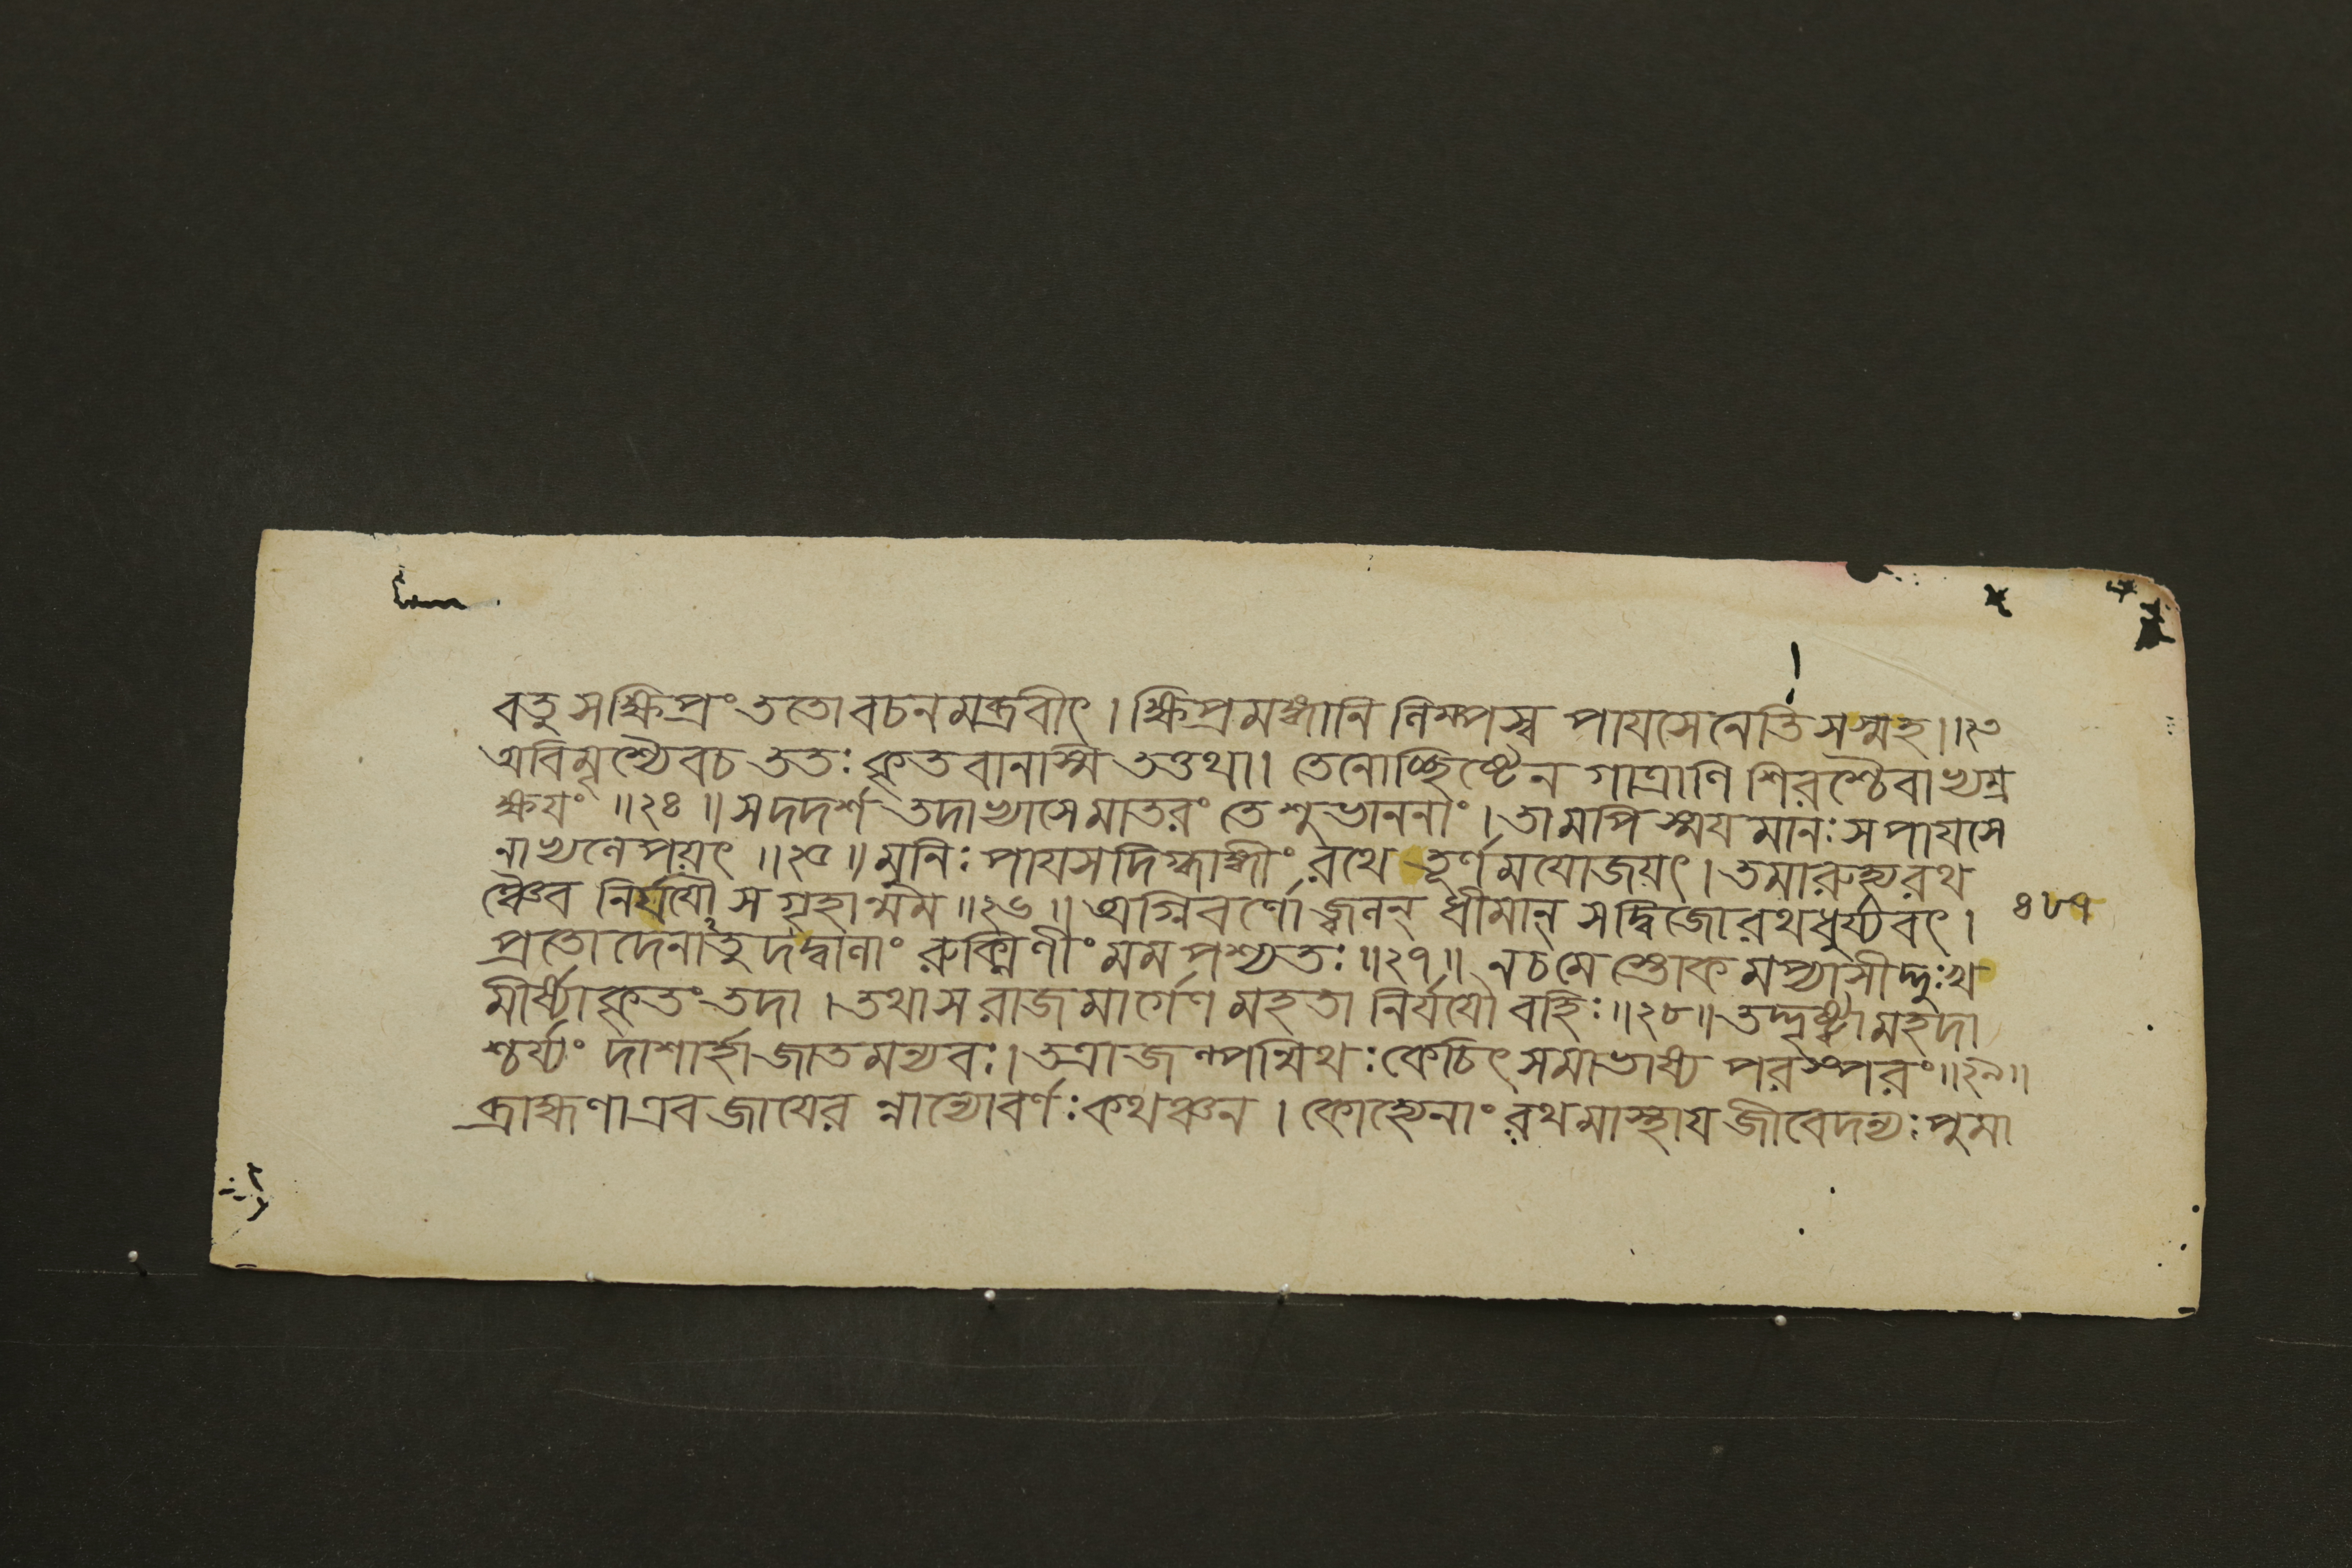 বতুসক্ষিপ্রং ততোবচনমব্রবীৎ । ক্ষিপ্রমঙ্গানি লিম্পস্ব পাযসেনেতি সস্মহ ।।২৩
অবিমৃশ্যৈবচ ততঃ কৃতবানাস্মি তত্তথা । তেনোচ্ছিষ্টেন গাত্রাণি শিরশ্চৈবাভ্যম্র
ক্ষযং ॥২৪॥ সদদর্শ তদাভ্যাসে মাতরং তে শুভাননাং । তামপি স্ময়মানঃ স পাযসে
নাভ্যলেপয়ৎ ॥২৫॥ মুনিঃ পাযসদিগ্ধাঙ্গীং রথে তূর্ণমযোজয়ৎ । তমারুহ্যরথ
ঞ্চৈব নির্যযৌ স গৃহান্মম ॥২৬॥ অগ্নিবর্ণো জ্বলন্ ধীমান্ সদ্বিজোরথধুর্য্যবৎ ।
৪৮৭
প্রতোদেনাতুদদ্বালাং রুক্মিণীং মম পশ্যতঃ ॥২৭॥ নচমে স্তোকমপ্যাসীদ্দুঃখ
মীর্ষ্যাকৃতং তদা । তথা স রাজমার্গেণ মহতা নির্যযৌ বহিঃ ॥২৮॥ তদ্দৃষ্ট্বা মহদা
শ্চর্য্যং দাশার্হা জাতমন্যবঃ । তত্রাজল্পন্মিথঃ কেচিৎ সমাভাষ্য পরস্পরং ॥২৯॥
ব্রাহ্মণা এব জাযের ন্নান্যোবর্ণঃ কথঞ্চন । কোহ্যেনাং রথমাস্থায জীবেদন্যঃ পুমা